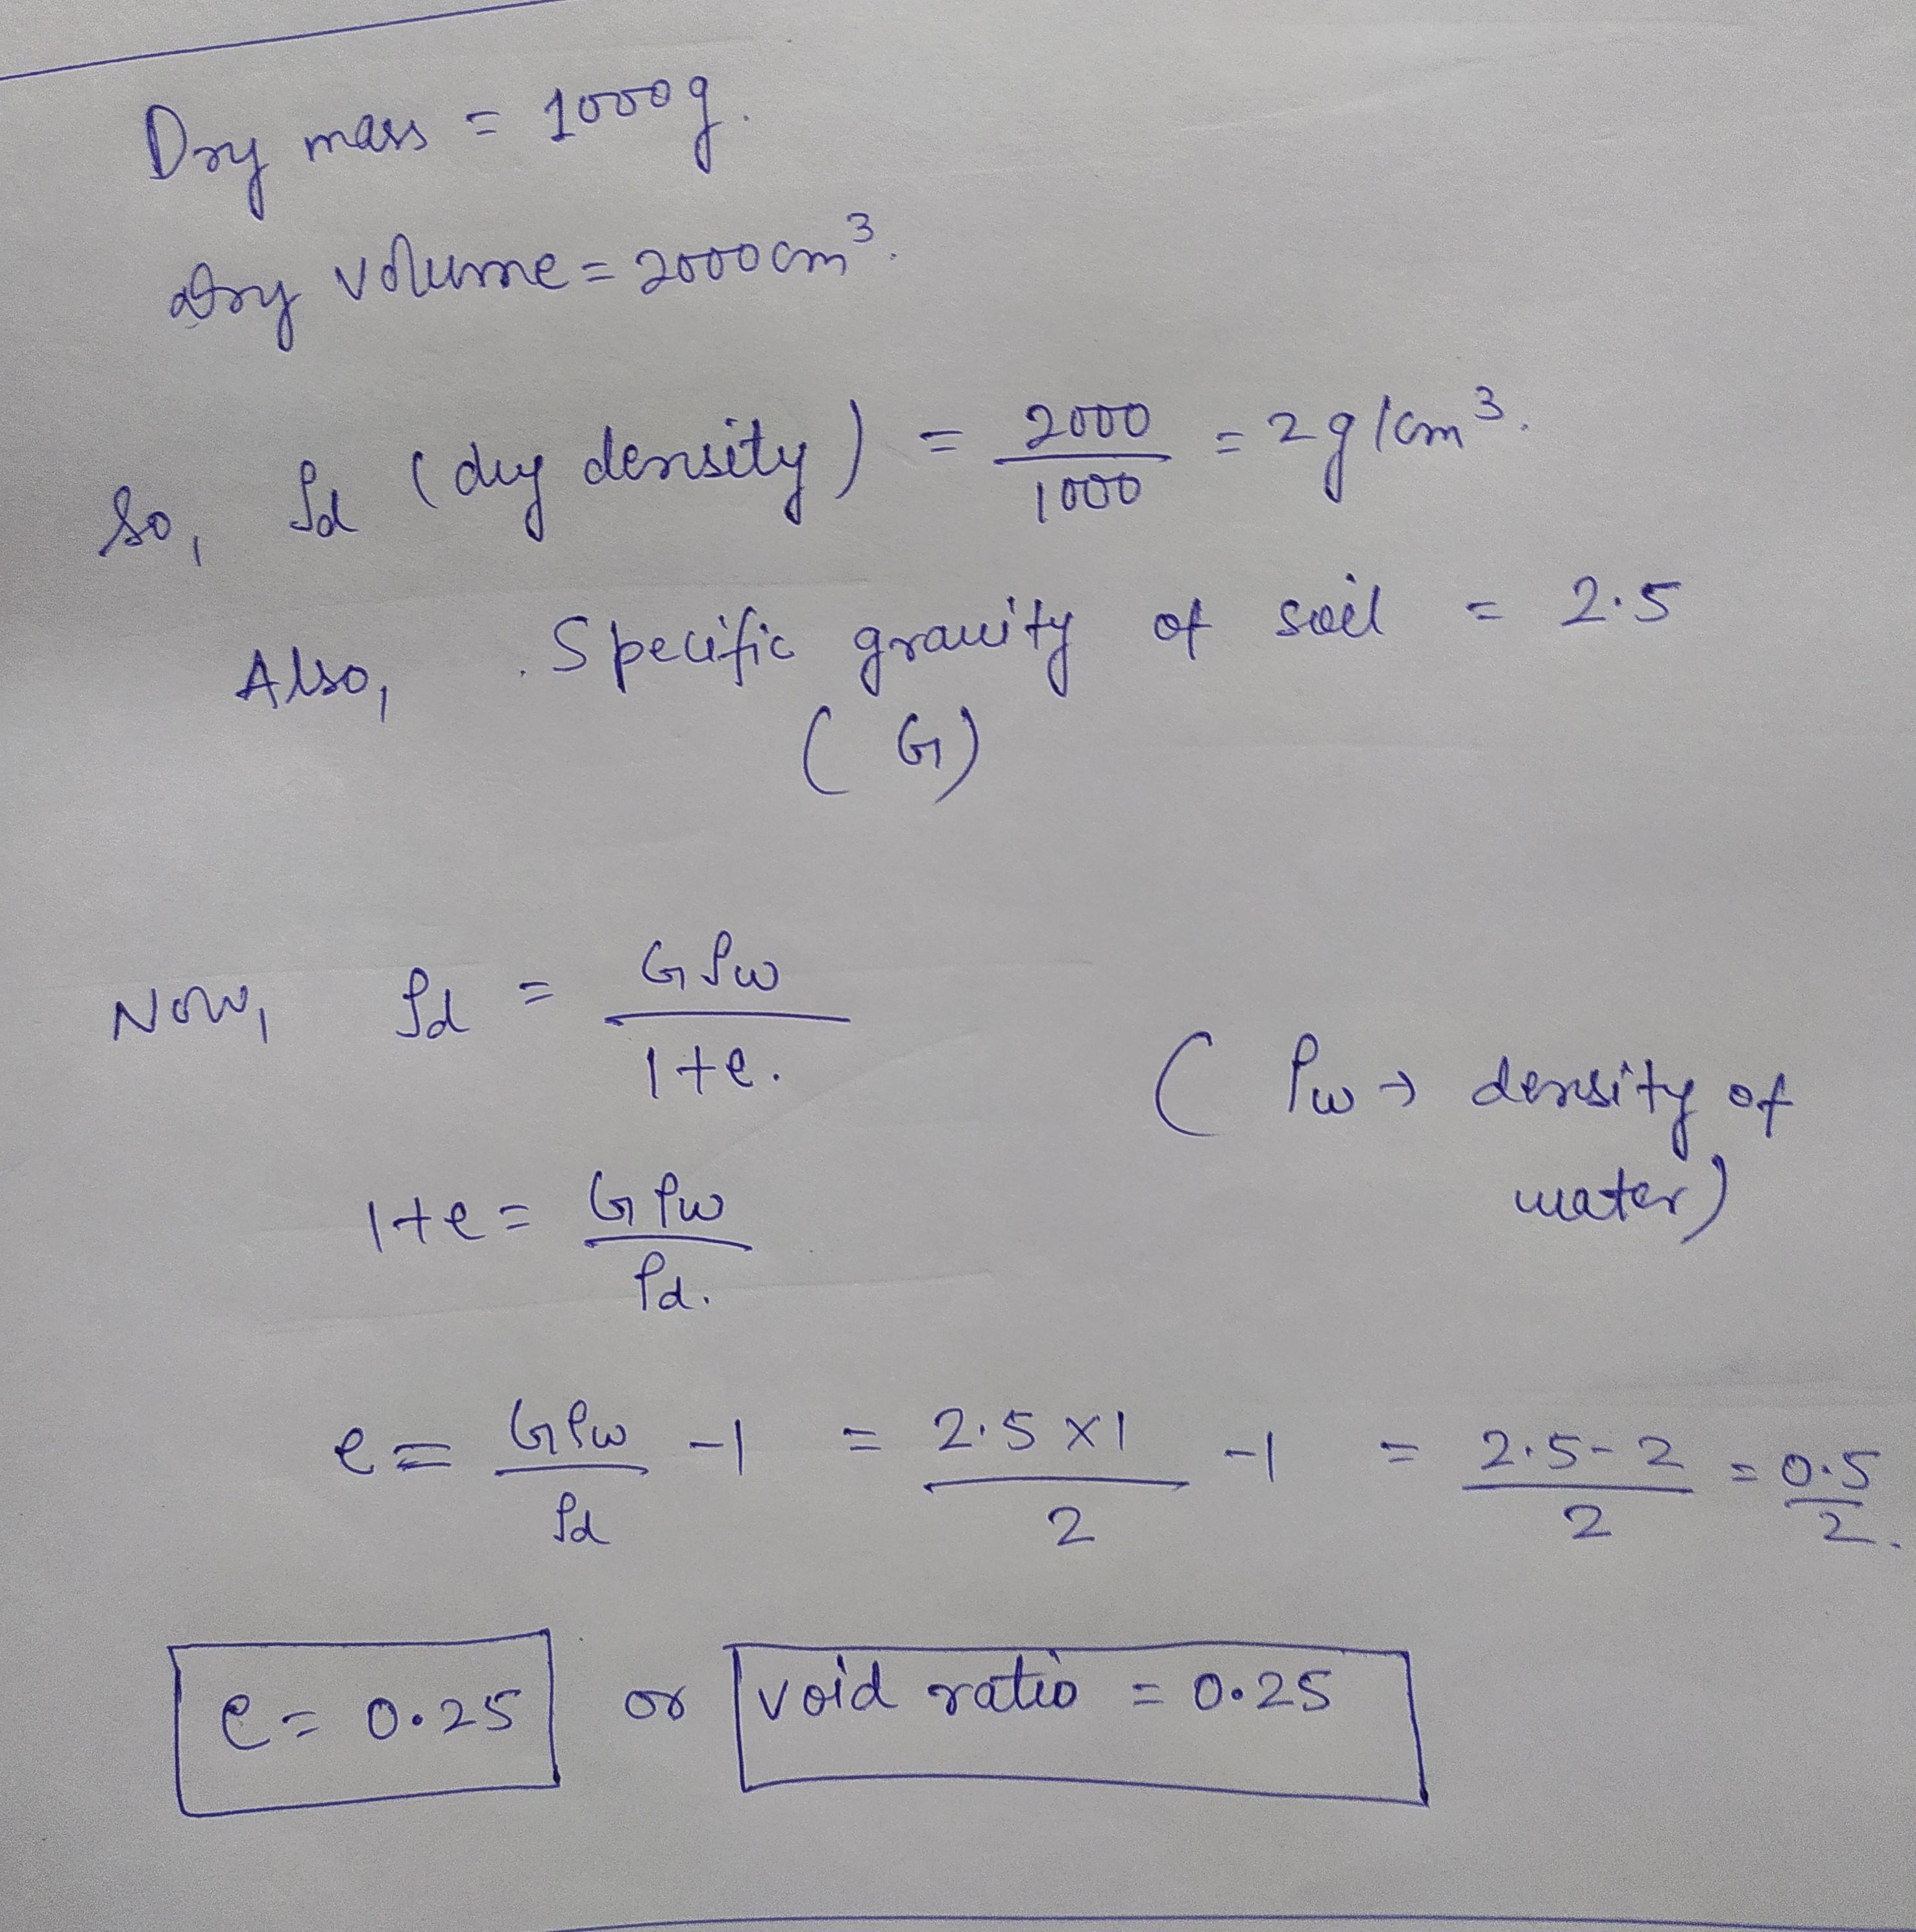 Dry mass = 1000g.
Dry volume = 2000cm³.
So, ρd (dry density) = 2000/1000 = 2g/cm³.
Also, Specific gravity of soil = 2.5
(G)
Now, ρd = Gρw/1+e.
(ρw → density of water)
1+e = Gρw/ρd.
e = Gρw/ρd -1 = 2.5×1/2 -1 = 2.5-2/2 = 0.5/2.
e = 0.25 or void ratio = 0.25